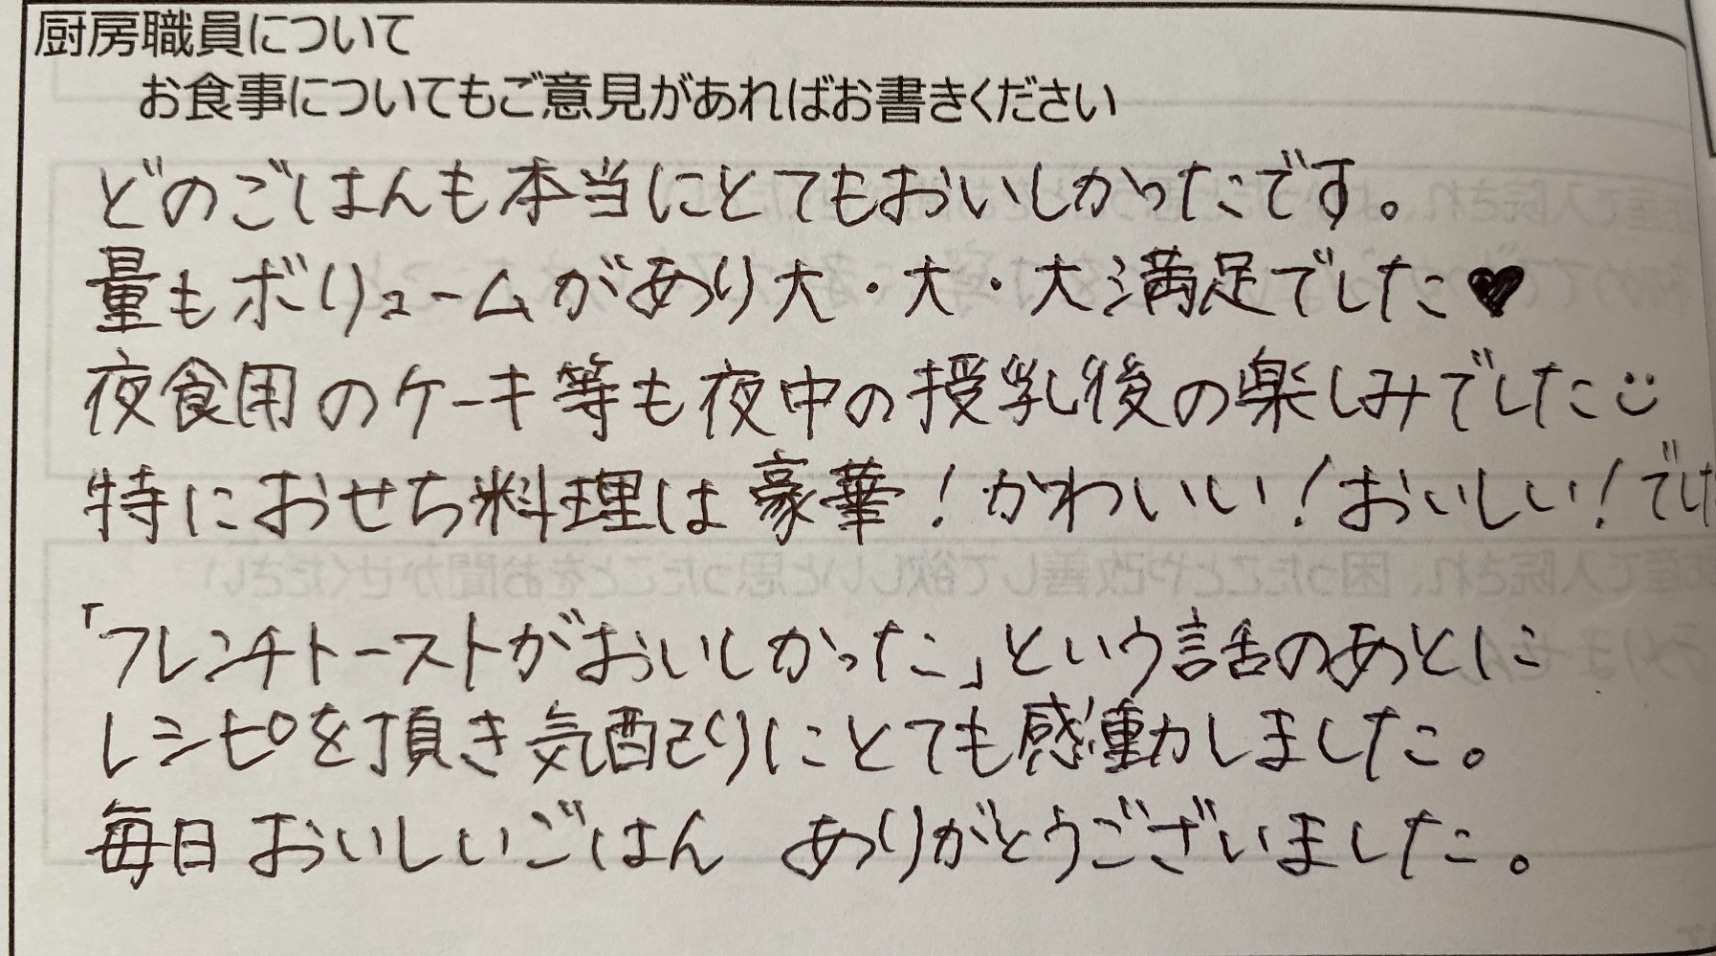 厨房職員について
お食事についてもご意見があればお書きください
どのごはんも本当にとてもおいしかったです。
量もボリュームがあり大・大・大満足でした♥
夜食用のケーキ等も夜中の授乳後の楽しみでした
特におせち料理は豪華！かわいい！おいしい！でした
「フレンチトーストがおいしかった」という話のあとに
レシピを頂き気配りにとても感動しました。
毎日おいしいごはん ありがとうございました。